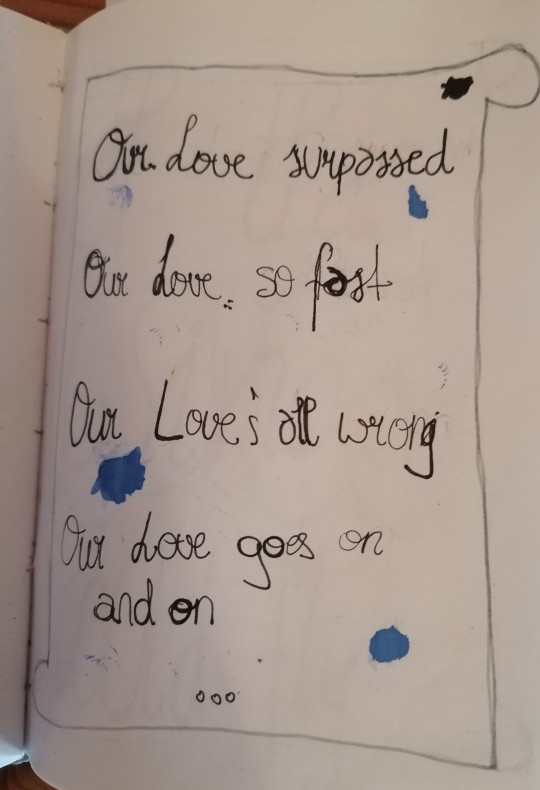 Our Love surpassed
Our Love so fast
Our Love's all wrong
Our Love goes on
and on
ooo